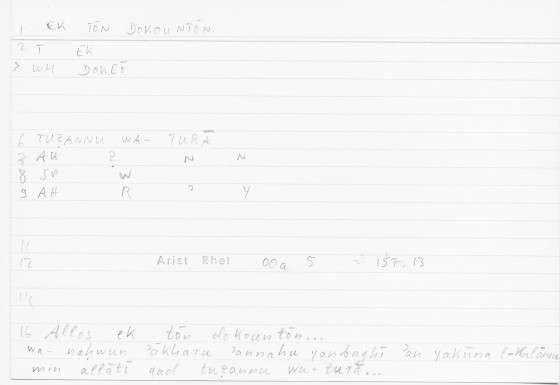 1 EK TŌN DOKOUNTŌN
2 T EK
3 WH DOKEŌ
6 TUẒANNU WA- TURĀ
7 AH Ẓ N N
8 SP W
9 AH R ʾ Y
11
12 Arist Rhet 00a 5 = 157.13
14
16 Allos ek tōn dokountōn...
wa- naḥwun ʾākharu ʾannahu yanbaghī ʾan yakūna l-kalāmu
min allātī qad tuẓannu wa-turā...